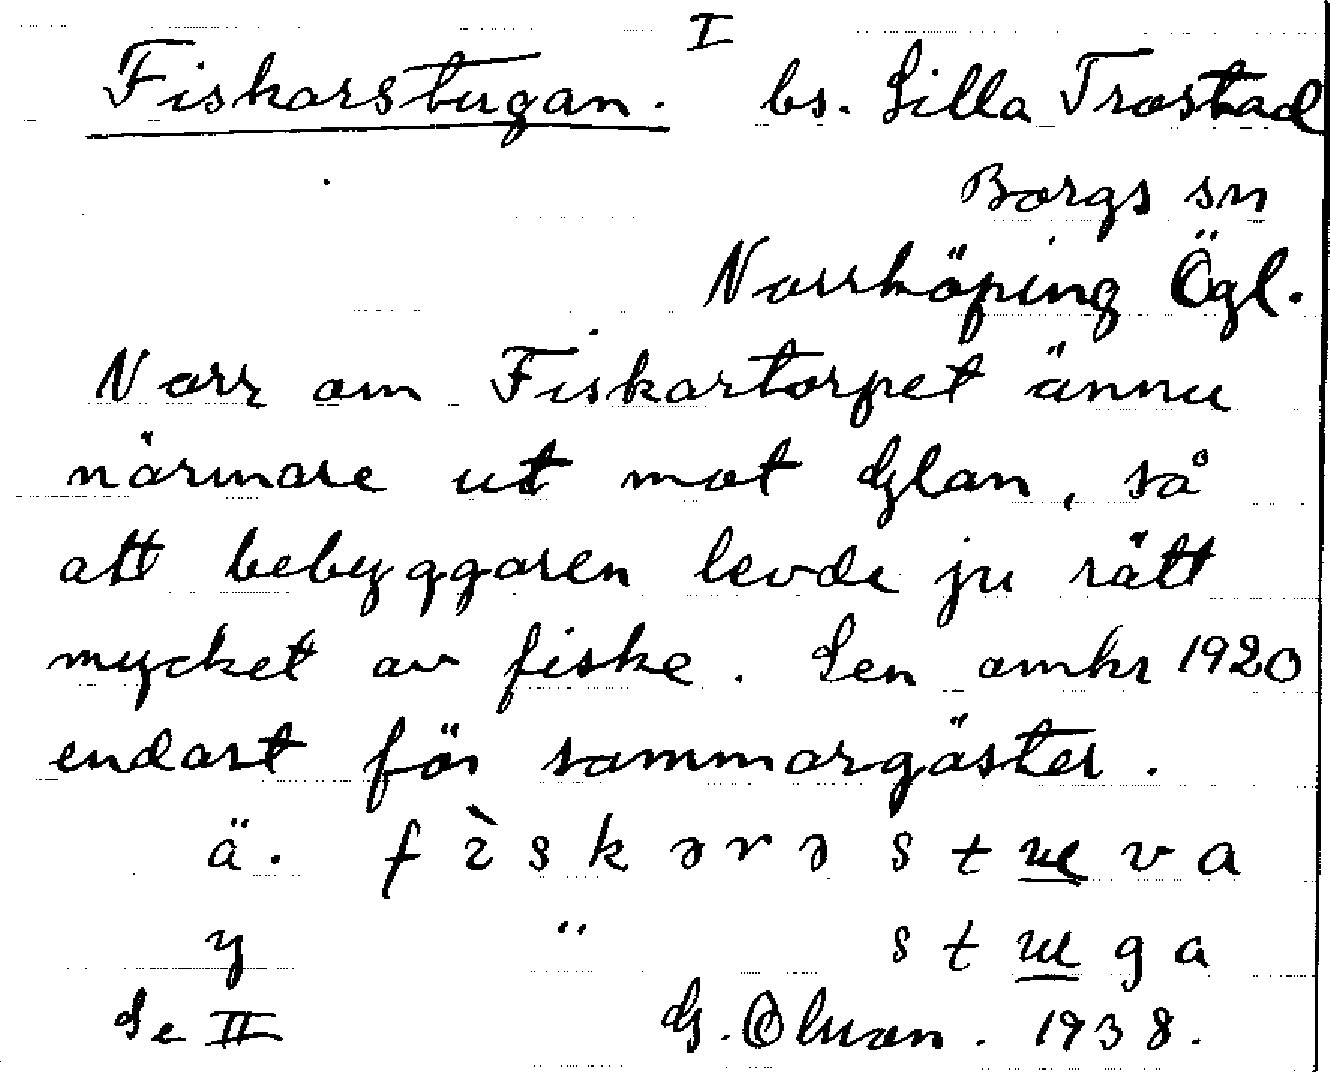 I
Fiskarstugan. bs. Lilla Trostad
Borgs sn
Norrköping Ögl.
Norr om Fiskartorpet ännu
närmare ut mot Glan, så
att bebyggaren levde ju rätt
mycket av fiske. Sen omkr 1920
endast för sommargäster.
ä. f ì s k ə r ə s t u v a
y " s t u g a
Se II G. Olson. 1938.